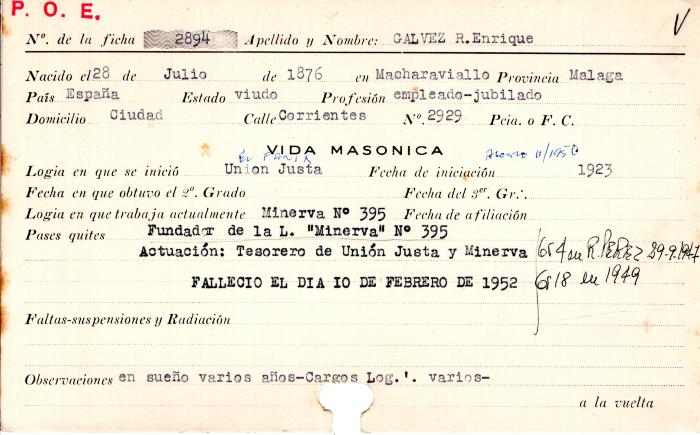 P. O. E.
V
Nº. de la ficha 2894 Apellido y Nombre: GALVEZ R.Enrique
Nacido el 28 de Julio de 1876 en Macharaviallo Provincia Malaga
País España Estado viudo Profesión empleado-jubilado
Domicilio Ciudad Calle Corrientes Nº. 2929 Pcia. o F. C.
VIDA MASONICA
Logia en que se inició Union Justa Fecha de iniciación 1923
Fecha en que obtuvo el 2º. Grado Fecha del 3er. Gr∴
Logia en que trabaja actualmente Minerva Nº 395 Fecha de afiliación
Pases quites Fundador de la L. "Minerva" Nº 395
Actuación: Tesorero de Unión Justa y Minerva
Gr 4 en R. PEREZ 29.9.1947
FALLECIO EL DIA IO DE FEBRERO DE 1952
Gr 18 en 1949
Faltas-suspensiones y Radiación
Observaciones en sueño varios años-Cargos Log.'. varios-
a la vuelta